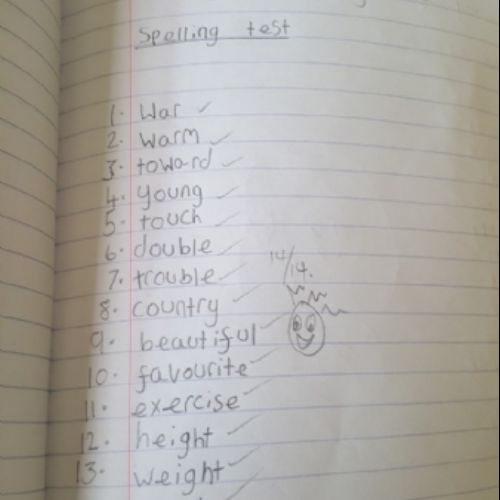 Spelling test
1. War
2. warm
3. toward
4. young
5. touch
6. double
14/14.
7. trouble
8. country
9. beautiful
10. favourite
11. exercise
12. height
13. weight